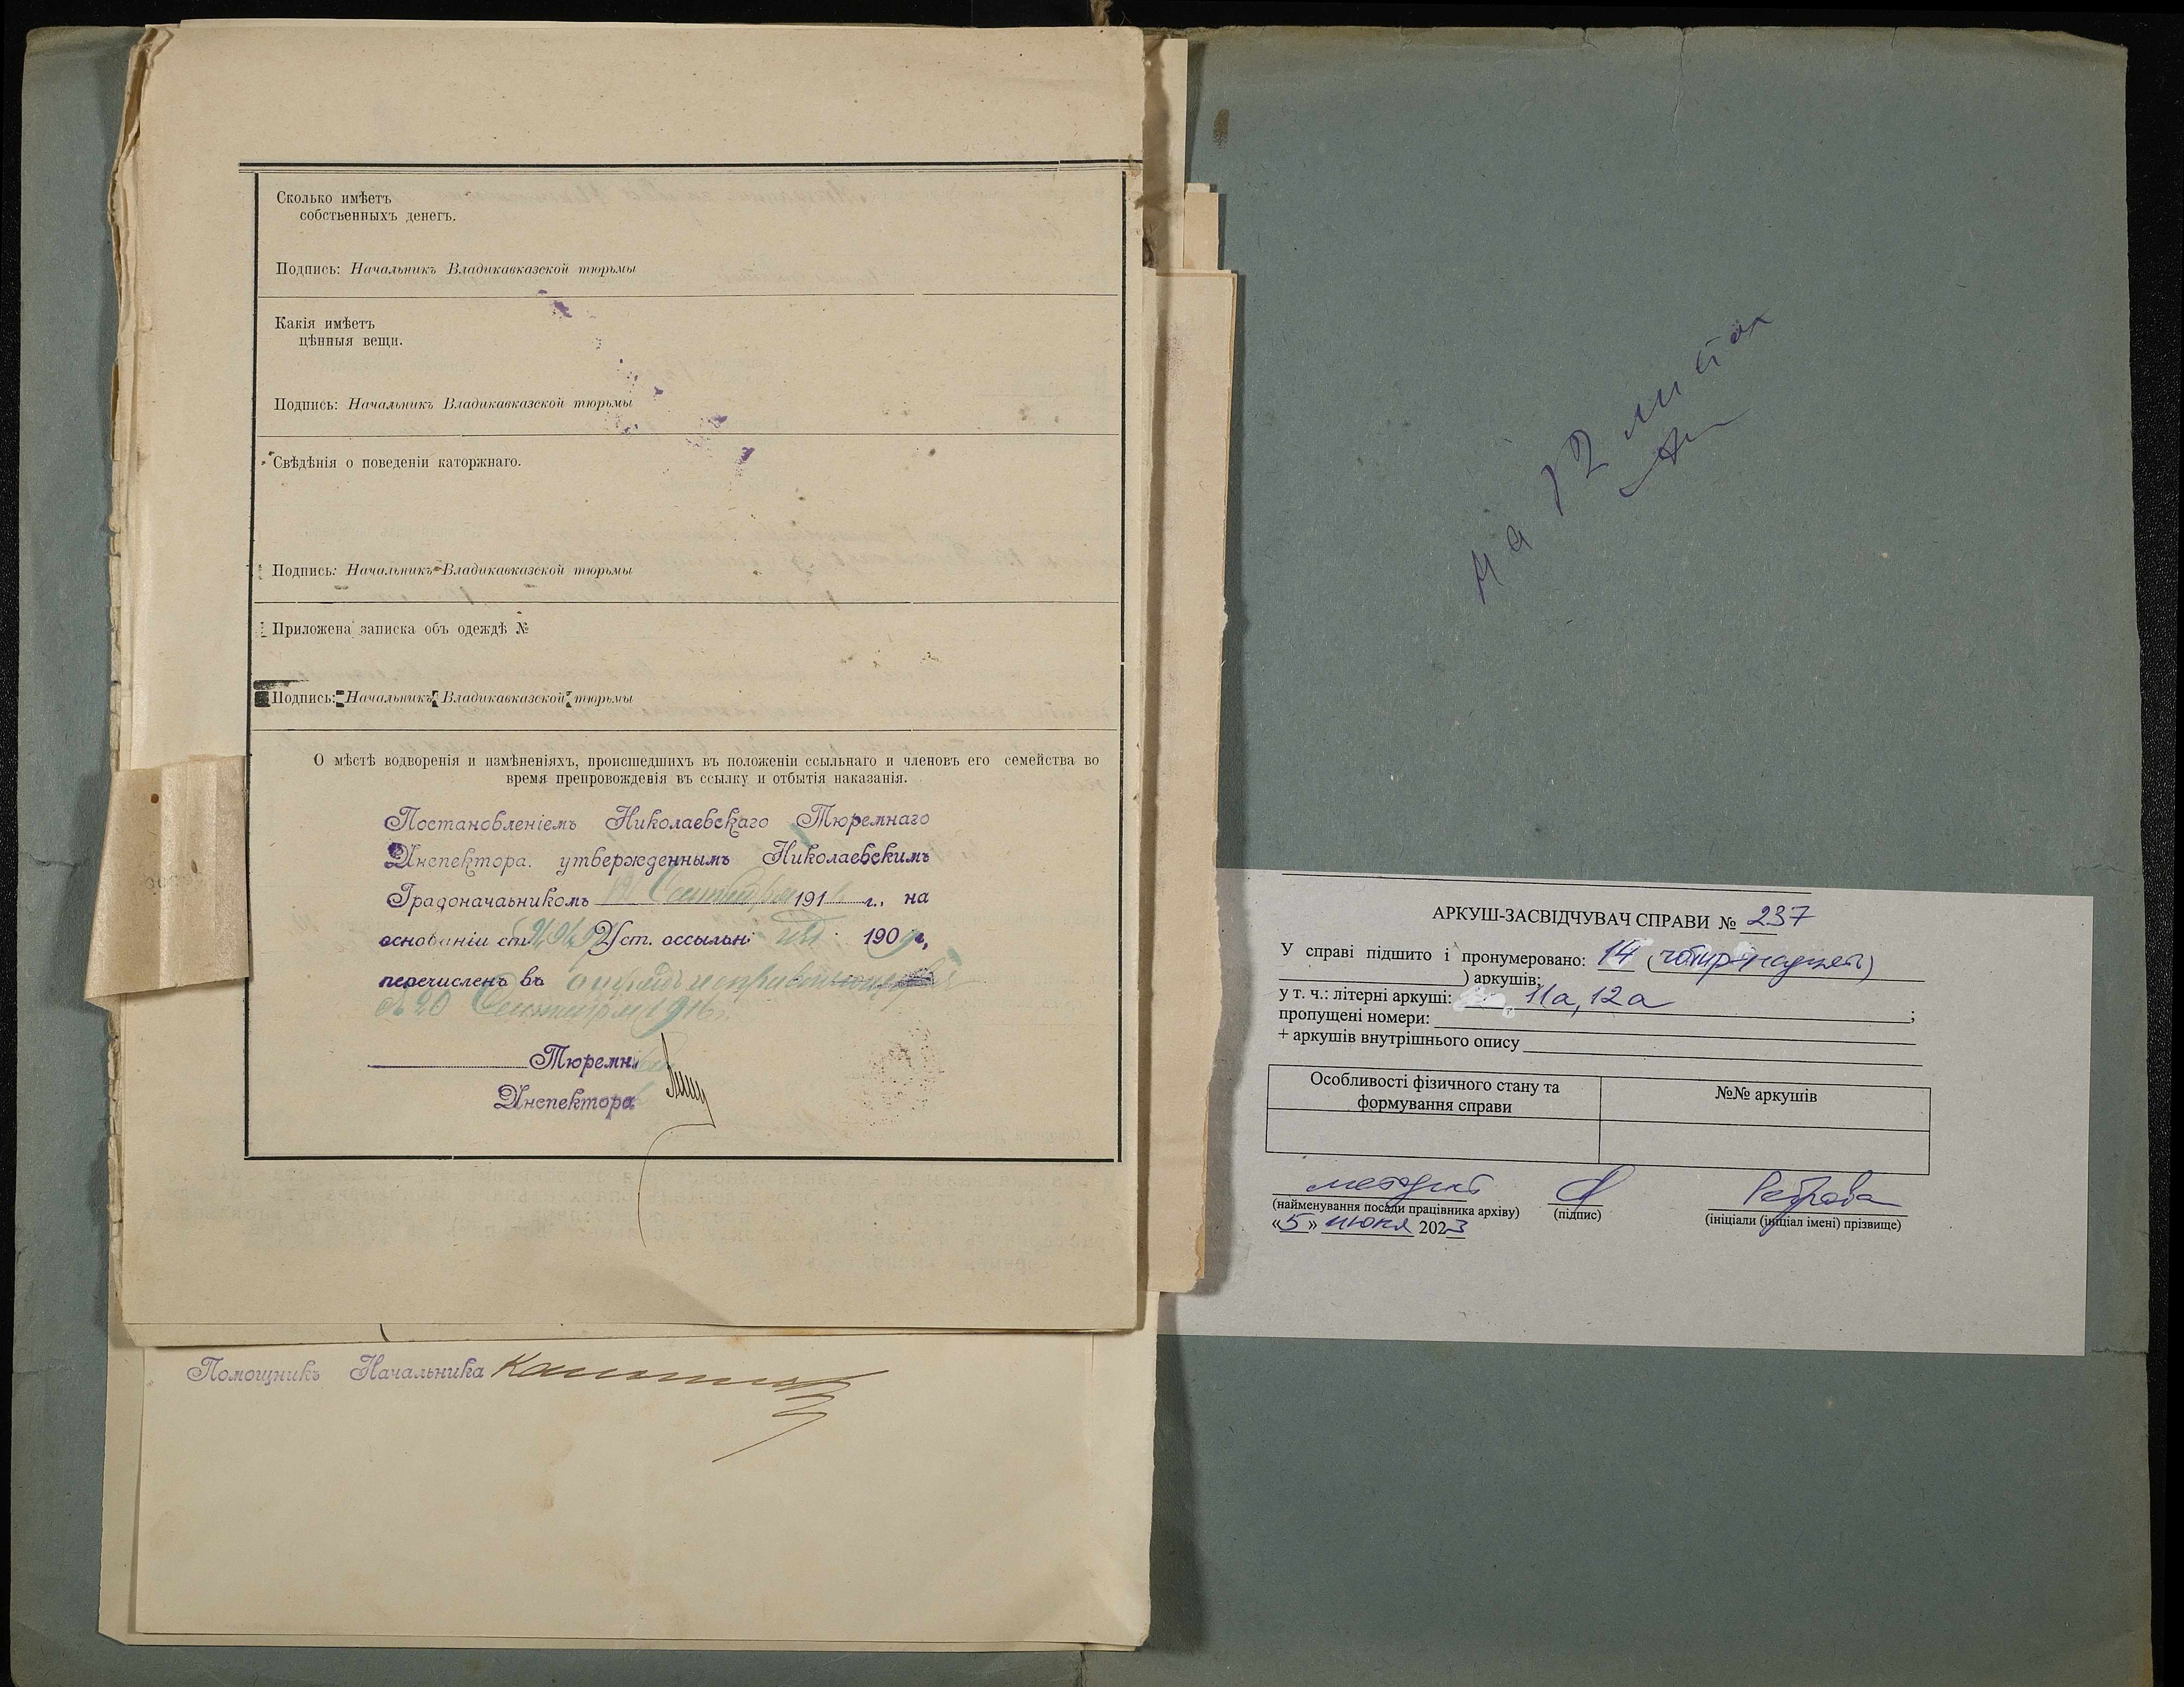 Сколько имѣетъ
собственныхъ денегъ.
Подпись: Начальникъ Владикавказской тюрьмы
Какія имѣетъ
цѣнныя вещи.
Подпись: Начальникъ Владикавказской тюрьмы
Свѣдѣнія о поведеніи каторжнаго.
Подпись: Начальникъ Владикавказской тюрьмы
Приложена записка объ одеждѣ №
Подпись: Начальникъ Владикавказской тюрьмы
О мѣстѣ водворенія и измѣненіяхъ, происшедшихъ въ положеніи ссыльнаго и членовъ его семейства во
время препровожденія въ ссылку и отбытія наказанія.
Постановленіемъ Николаевскаго Тюремнаго
Инспектора. утвержденнымъ Николаевскимъ
Градоначаьникомъ Сентября 191 г., на
основаніи ст. Уст. оссыльн. изд. 1909 г,
перечисленъ въ отрядъ исправляющихся
съ 20 Сентября 1916 г.
Тюремн
Инспектора
Помощникъ Начальника
на 12 листах
АРКУШ-ЗАСВІДЧУВАЧ СПРАВИ № 237
У справі підшито і пронумеровано: 14 (чотирнадцять)
) аркушів;
у т. ч.: літерні аркуші: 11а, 12а ;
пропущені номери:
+ аркушів внутрішнього опису
Особливості фізичного стану та
формування справи
№№ аркушів
методист
Реброва
(найменування посади працівника архіву) (підпис) (ініціали (ініціал імені) прізвище)
«5» июня 2023